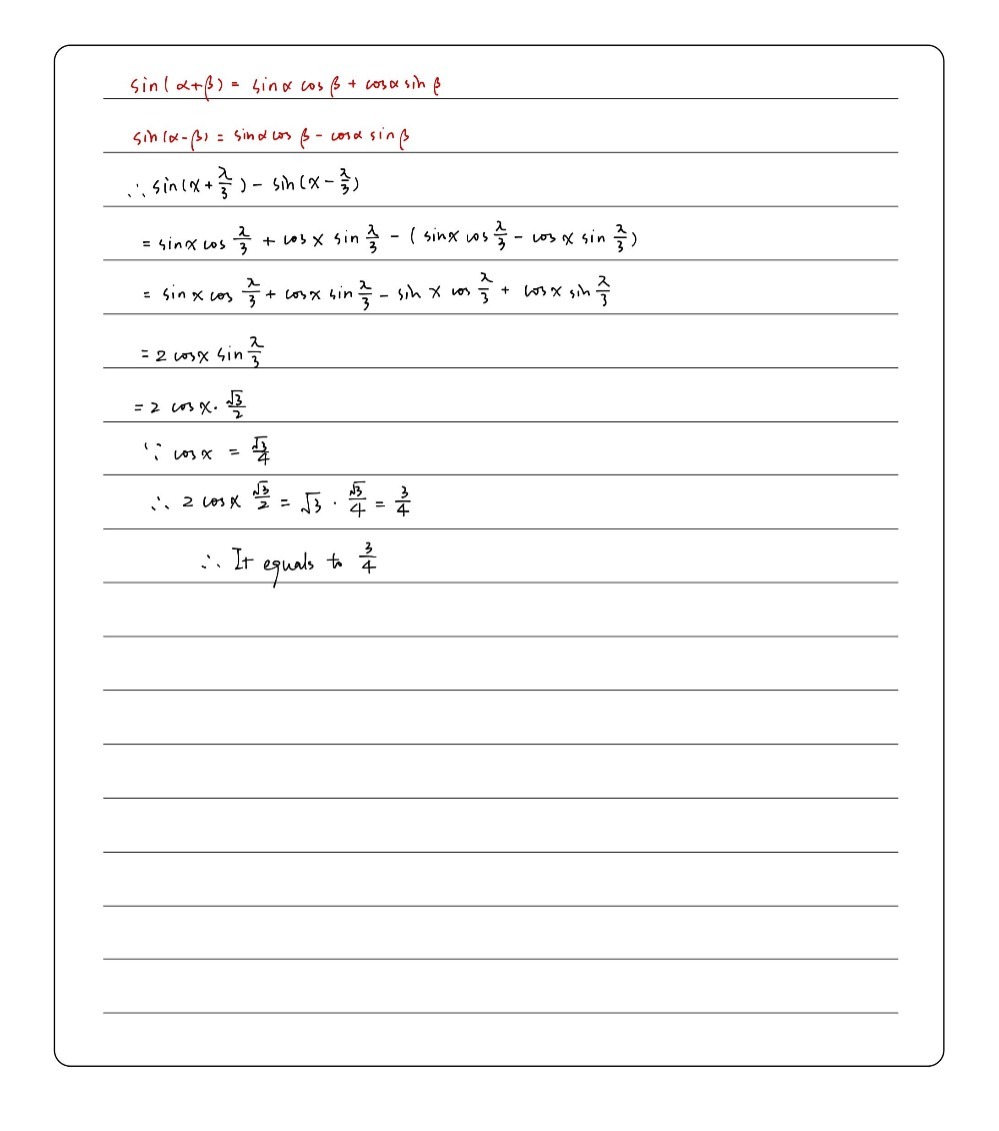 sin(α+β) = sinα cos β + cosα sin β
sin(α-β) = sinα cos β - cosα sin β
∴ sin(x + π/3) - sin(x - π/3)
= sinx cos π/3 + cos x sin π/3 - ( sinx cos π/3 - cos x sin π/3 )
= sin x cos π/3 + cosx sin π/3 - sin x cos π/3 + cosx sin π/3
= 2 cosx sin π/3
= 2 cos x · √3/2
∵ cosx = √3/4
∴ 2 cosx √3/2 = √3 · √3/4 = 3/4
∴ It equals to 3/4